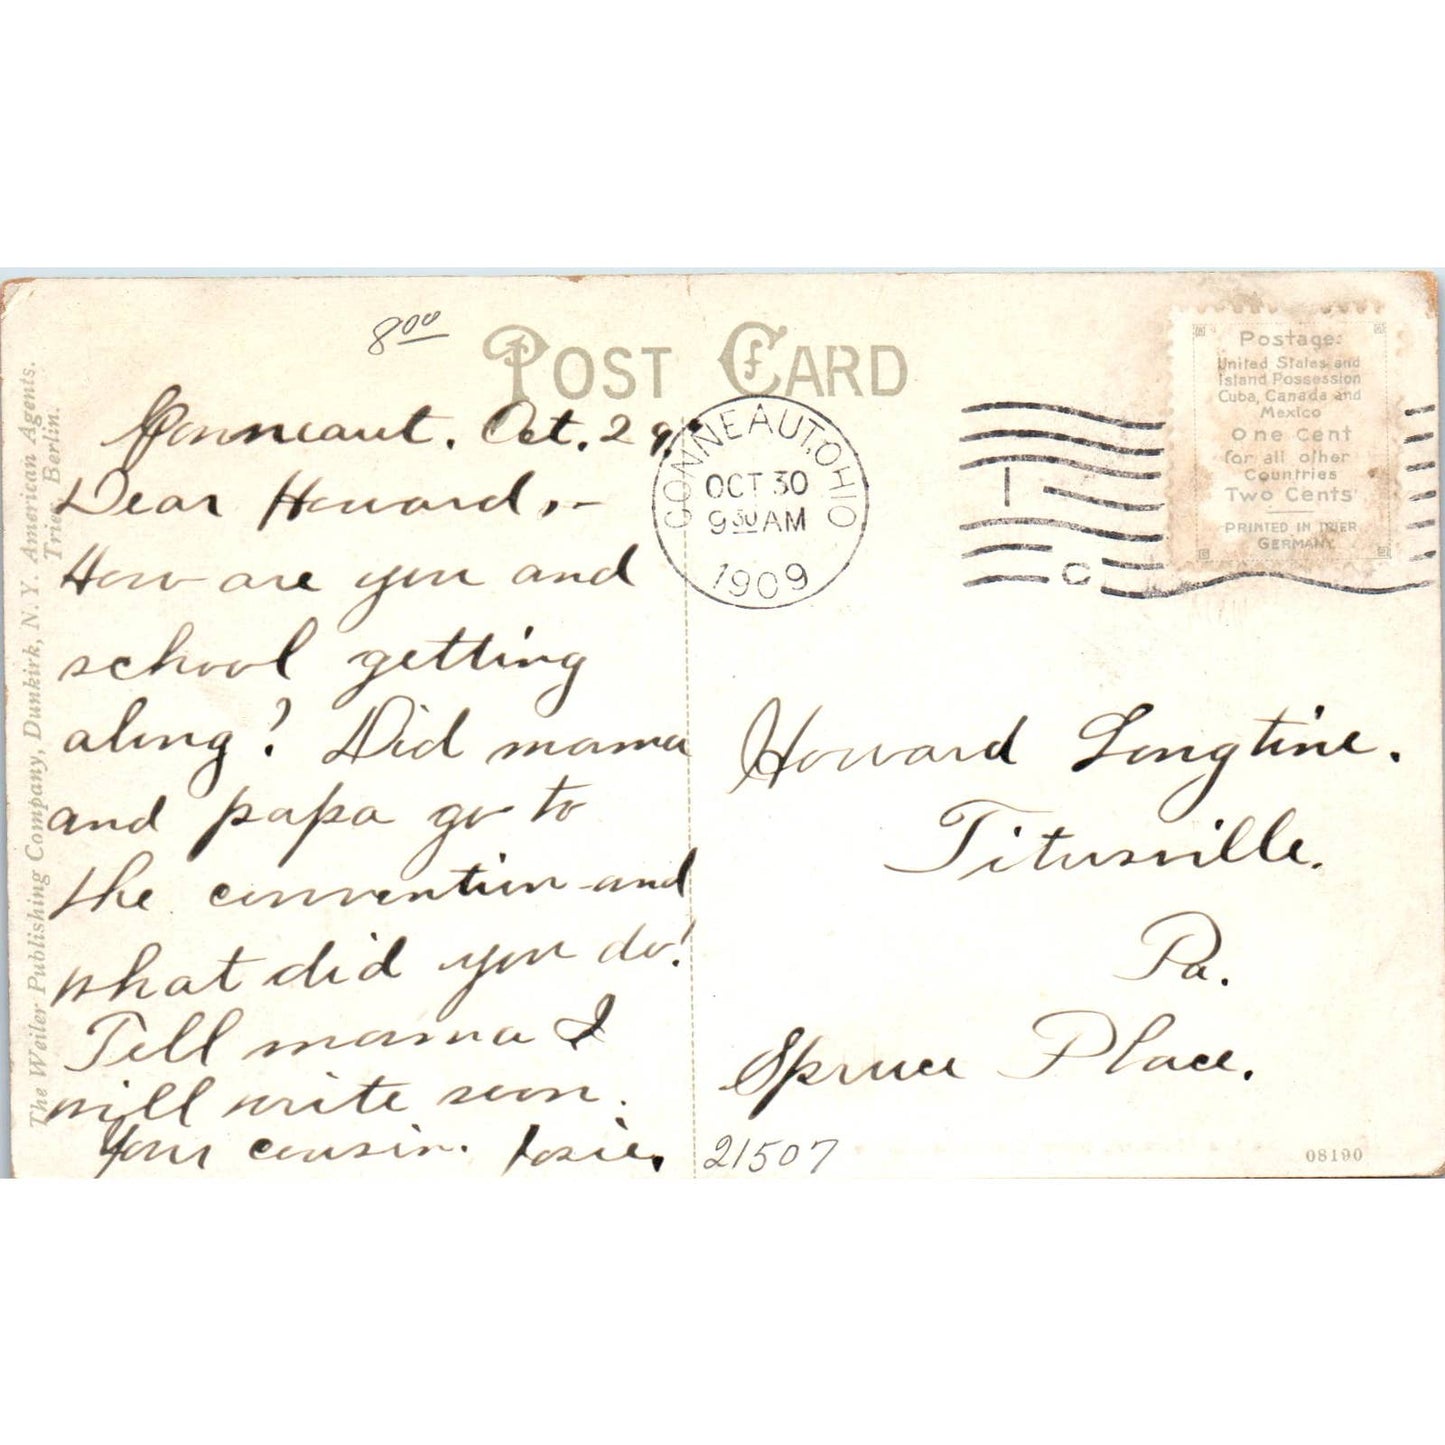 8 00
POST CARD
Conneaut. Oct. 29,
Dear Howard,-
How are you and
school getting
along? Did mama
and papa go to
the convention and
what did you do?
Tell mama I
will write soon.
Your cousin. Josie.
CONNEAUT, OHIO
OCT 30
9 30 AM
1909
Postage:
United States and
Island Possession
Cuba, Canada and
Mexico
One Cent
for all other
Countries
Two Cents
PRINTED IN TRIER
GERMANY
Howard Longtine.
Titusville.
Pa.
Spruce Place.
21507
08190
The Weiler Publishing Company, Dunkirk, N. Y. American Agents.
Trier Berlin.